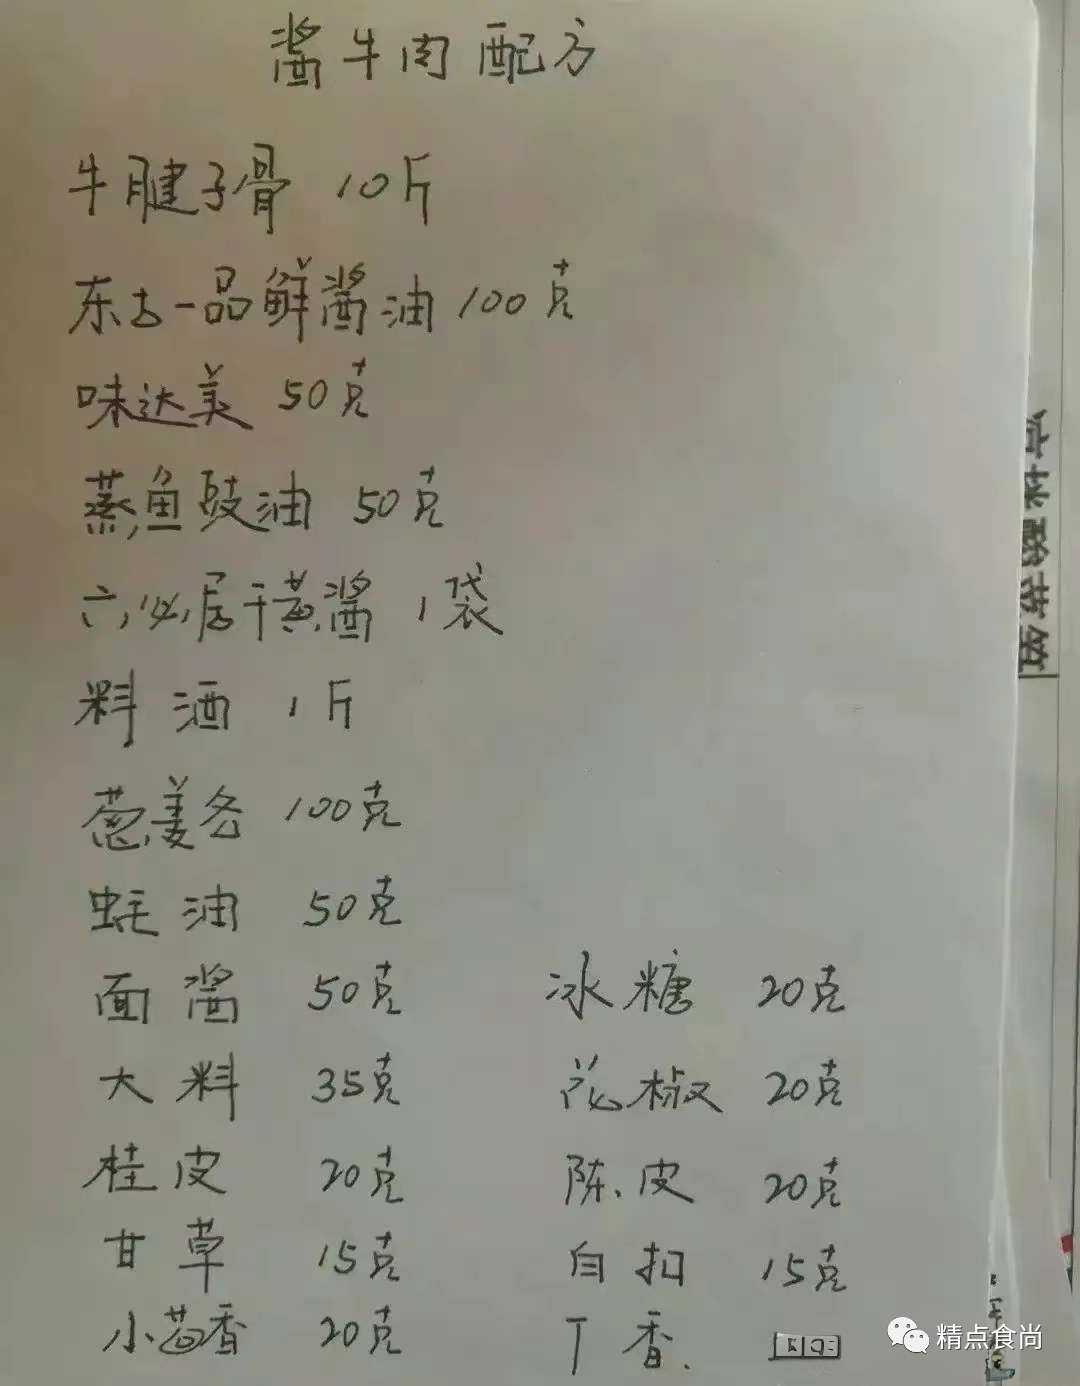 酱牛肉配方
牛腱子骨 10斤
东古一品鲜酱油 100克
味达美 50克
蒸鱼豉油 50克
六必居干黄酱 1袋
料酒 1斤
葱姜各 100克
蚝油 50克
面酱 50克 冰糖 20克
大料 35克 花椒 20克
桂皮 20克 陈皮 20克
甘草 15克 白扣 15克
小茴香 20克 丁香
精点食尚